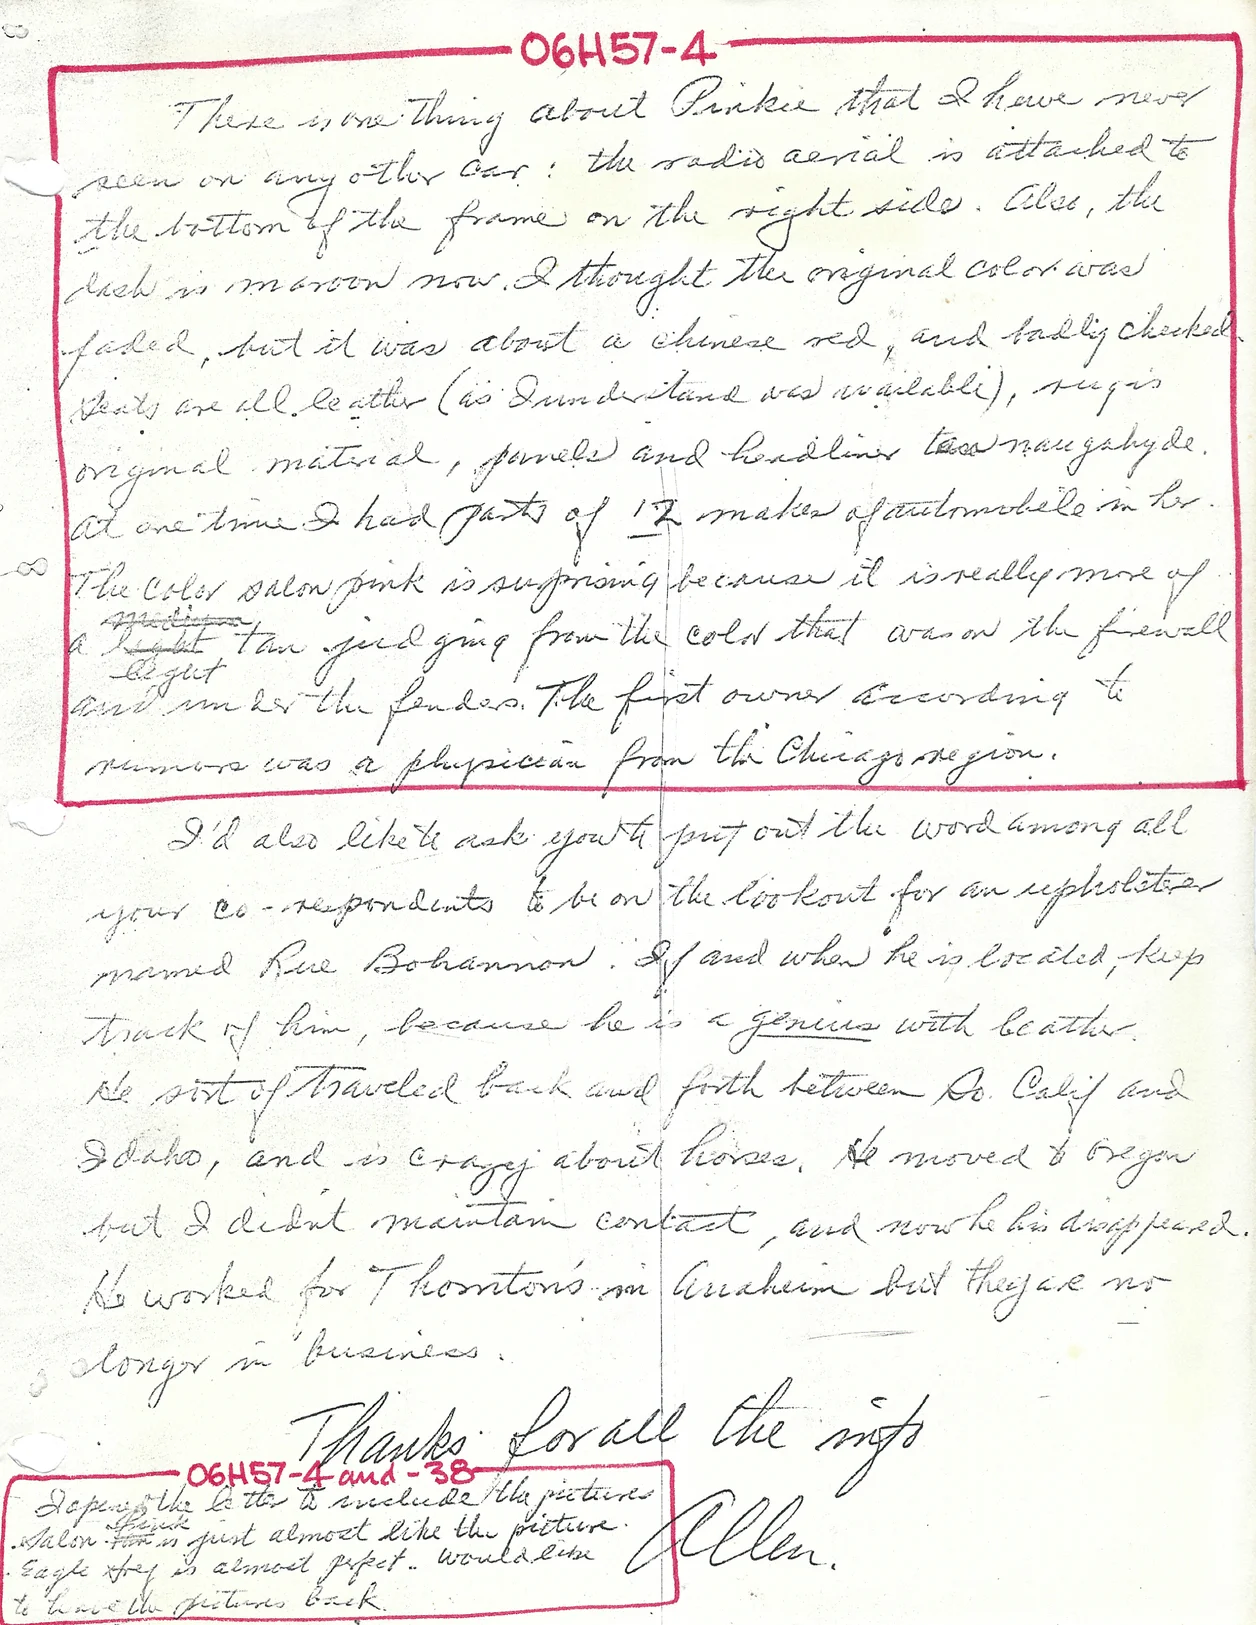 06H57-4
There is one thing about Pinkie that I have never
seen on any other car: the radio aerial is attached to
the bottom of the frame on the right side. Also, the
dash is maroon now. I thought the original color was
faded, but it was about a chinese red, and badly checked.
Seats are all leather (as I understand was available), rug is
original material, panels and headliner tan naugahyde.
At one time I had parts of 12 makes of automobile in her.
The color salon pink is surprising because it is really more of
medium
a light tan judging from the color that was on the firewall
light
and under the fenders. The first owner according to
rumors was a physician from the Chicago region.
I'd also like to ask you to put out the word among all
your co-respondents to be on the lookout for an upholsterer
named Rue Bohannon. If and when he is located, keep
track of him, because he is a genius with leather.
He sort of traveled back and forth between So. Calif and
Idaho, and is crazy about horses. He moved to Oregon
but I didn't maintain contact, and now he has disappeared.
He worked for Thornton's in Anaheim but they are no
longer in business.
Thanks for all the info
06H57-4 and -38
I opened the letter to include the pictures
Salon pink is just almost like the picture.
Eagle grey is almost perfect. Would like
to have the pictures back.
Allen.